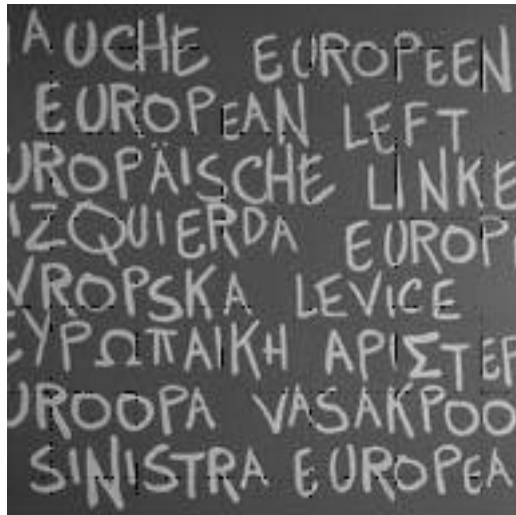 AUCHE EUROPEEN
EUROPEAN LEFT
UROPÄISCHE LINKE
IZQUIERDA EUROP
VROPSKA LEVICE
ΕΥΡΩΠΑΙΚΗ ΑΡΙΣΤΕΡ
UROOPA VASAKPOO
SINISTRA EUROPEA